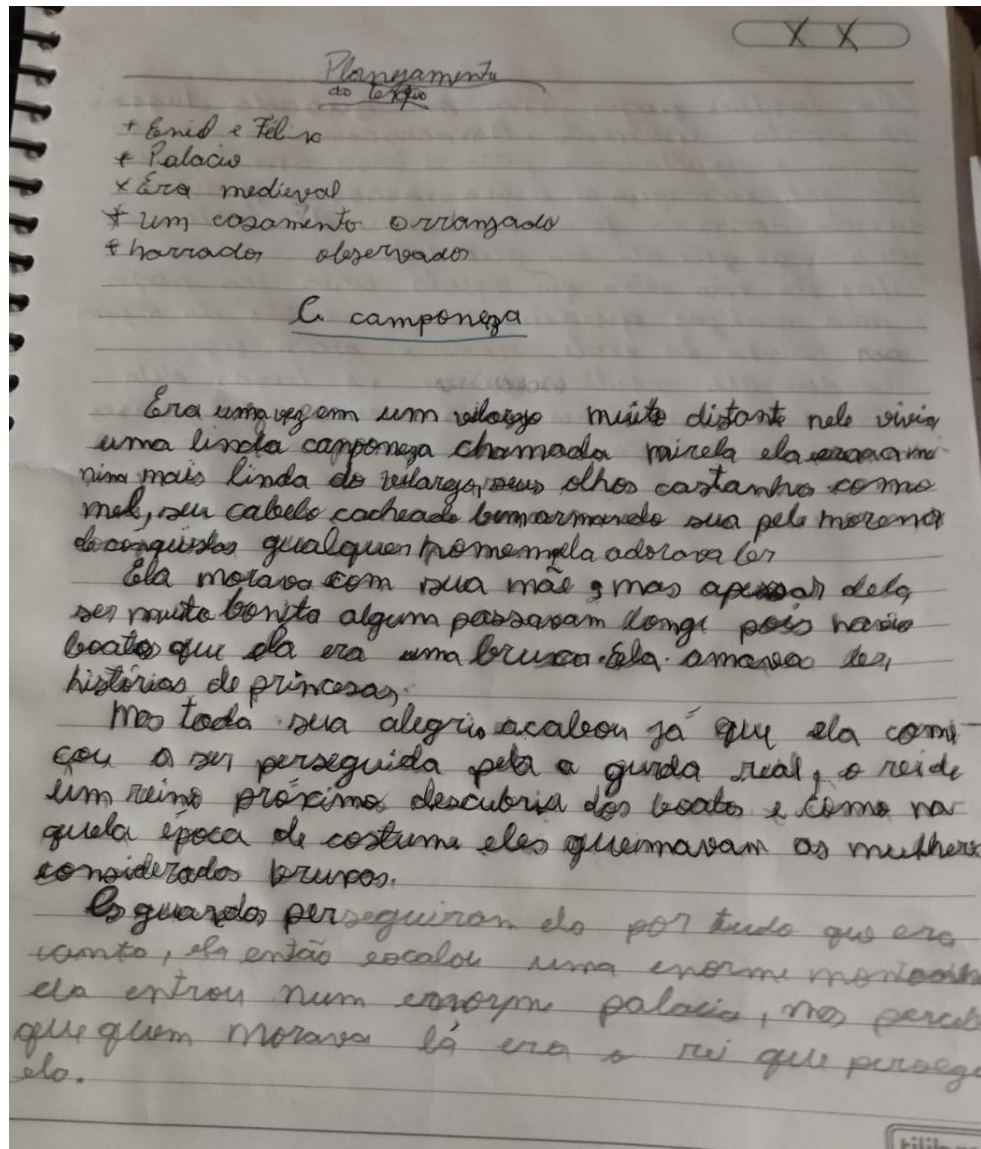 X X
Planejamento
do texto
+ Enid e Felix
+ Palacio
x Era medieval
+ um casamento arranjado
+ narrador observador
A camponeza
Era uma vez em um vilargo muito distante nele vivia
uma linda camponeza chamada mirela ela era a me-
nina mais linda do vilargo, seus olhos castanho como
mel, seu cabelo cacheado sua pele morena
qualquer homem ela adorava ler
Ela morava com sua mãe, mas apesar dela
ser muito bonita algum passavam longi pois havia
boatos que ela era uma bruxa. Ela amava ler
histórias de princesas.
Mas toda sua alegria acabou já que ela comi-
çou a ser perseguida pela a gurda real, o rei de
um reino próximo descubria dos boatos e como na-
quela época de costume eles queimavam as mulheres
consideradas bruxas.
Os guardas perseguiram ela por tudo que era
canto, ela então escalou uma enorme
ela entrou num enorme palacio, mas
que quem morava lá era o rei que
ela.